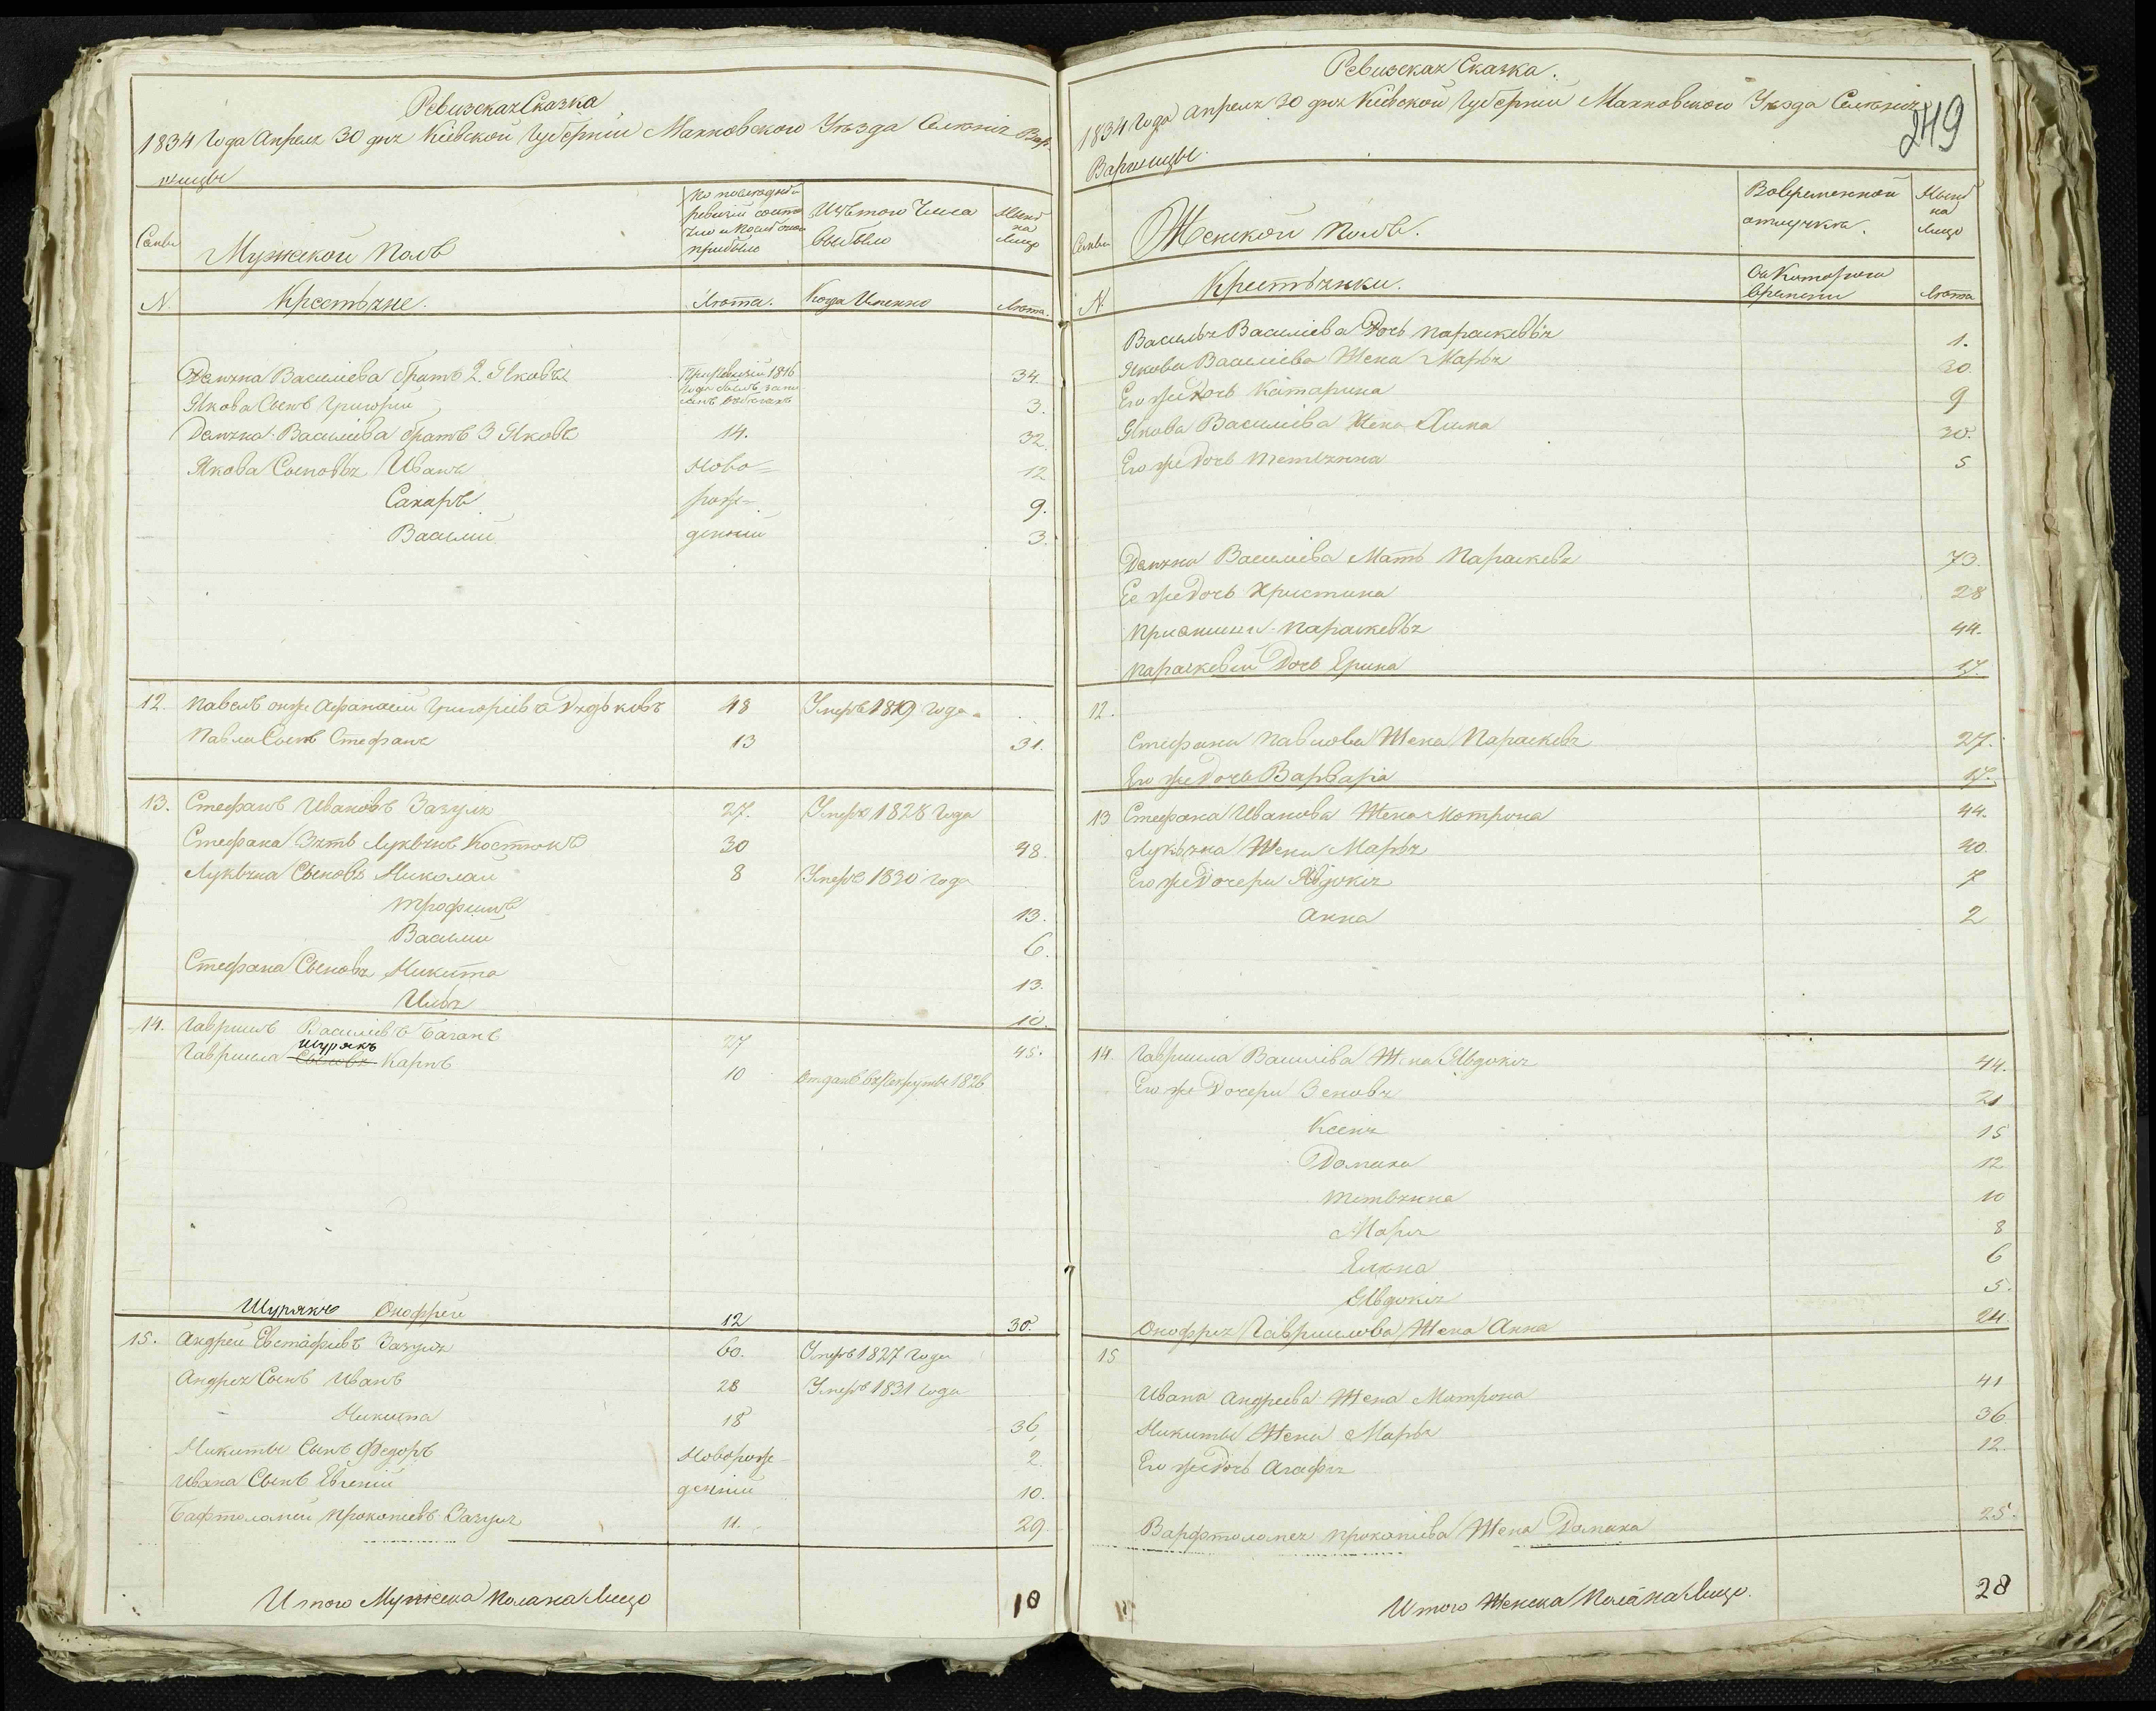 Ревизская Сказка
1834 Года Апреля 30 дня Кіевской Губерніи Махновского Уезда Селенія Вар-
ницы
Семьи
Мужеской Полъ
По последней ревизіи состояло и после оной прибыло
Изъ того Числа выбыло
Ныне на Лицо
N.
Крестьяне.
Лета.
Когда Именно
Лета.
Демяна Василіева братъ 2. Яковъ При Ревизіи 1816 Года былъ запи- 34.
Якова Сынъ Григорій 3.
Демяна Василіева братъ 3 Яковъ 14. 32.
Якова Сыновья Иванъ Ново= 12
Сахаръ рож= 9.
Василій денніи 3.
12. Павелъ онже Афанасій Григоріевъ Дядьковъ 48 Умеръ 1819 года.
Павла Сынъ Стефанъ 13 31.
13. Стефанъ Ивановъ Зазуля 27. Умеръ 1828 Года
Стефана Зять Лукьянъ Костюкъ 30 48.
Лукьяна Сыновья Николай 8 Умеръ 1830 года
Трофимъ 13.
Василій 6.
Стефана Сыновья Никита 13.
Илья 10.
14. Гавриилъ Василіевъ Баганъ 27 45.
Шурякъ
Гавриила Сыновья Карпъ 10 Отданъ въ Рекруты 1826
Шурякъ Онофрей 12 30.
15. Андрей Евстафіевъ Зазуля 60. Умеръ 1827 Года
Андрея Сынъ Иванъ 28 Умеръ 1831 Года
Никита 18 36,
Никиты Сынъ Федоръ Новорож- 2.
Ивана Сынъ Евгеній денніи 10.
Бафтоломей Прокопіевъ Зазуля 11. 29.
Итого Мужеска Пола на Лицо 18
Ревизская Сказка.
249
1834 Года Апреля 30 дня Кіевской Губерніи Махновского Уезда Селенія
Варницы.
Семьи
Женской Полъ.
Во временной отлучке.
Ныне на Лицо
N.
Крестьянки.
Съ Котораго времени
Лета
Василья Василіева Дочь Параскевья 1.
Якова Василіева Жена Марья 20.
Его же Дочь Катарина 9
Якова Василіева Жена 30.
Его же Дочь Тетьянна 5
Демяна Василіева Мать Параскевя 73.
Ее же Дочь Христина 28
Параскевья 44.
Параскевіи Дочь Ерина 17.
12.
Стефана Павлова Жена Параскевя 27.
Его же Дочь Варвара 17.
13 Стефана Иванова Жена Мотрона 44.
Лукьяна Жена Марья 20.
Его же Дочери Явдокія 7
Анна 2
14. Гавриила Василіева Жена Явдокія 44.
Его же Дочери Зеновя 21
Ксеня 15
Домаха 12
Тетьянна 10
Маря 8
Елена 6
Явдокія 5.
Онофрея Гавриилова Жена Анна 24.
15
Ивана Андреева Жена Матрона 41
Никиты Жена Марья 36
Его же Дочь Агафія 12.
Варфтоломея Прокапіева Жена Домаха 25.
Итого Женска Пола на Лицо. 28